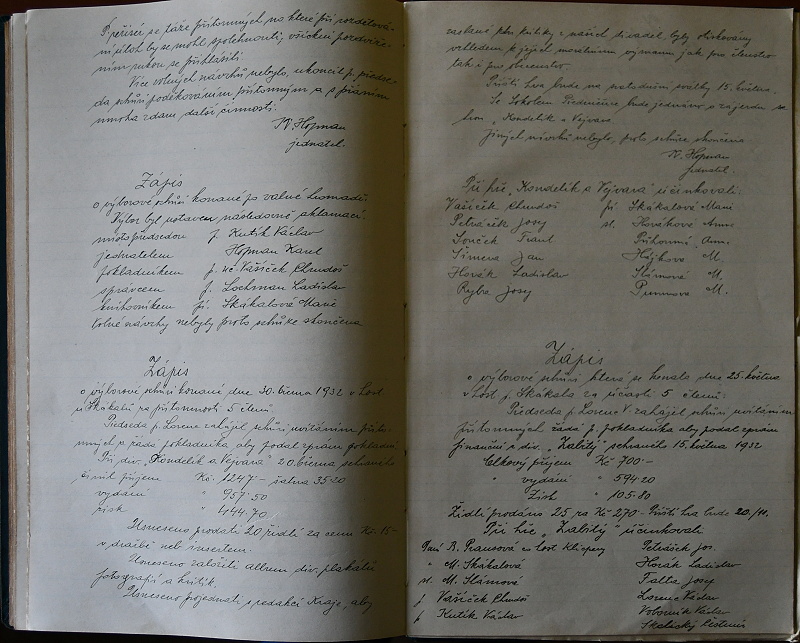 Předseda se táže přítomných na které při rozdělová-
ní úloh by se mohl spolehnouti, všichni pozdviže-
ním rukou se přihlásili.
Více volných návrhů nebylo, ukončil p. předse-
da schůzi poděkováním přítomným a s přáním
mnoha zdaru další činnosti.
W. Hofman
jednatel.
Zápis
o výborové schůzi konané po valné hromadě.
Výbor byl ustaven následovně aklamací
místopředsedou p. Kutík Václav
jednatelem Hofman Karel
pokladníkem p. Vašíček Chrudoš
správcem p. Lochman Ladislav
knihovníkem sl. Skákalová Marie
Volné návrhy nebyly proto schůze skončena
Zápis
o výborové schůzi konané dne 30. března 1932 v host.
u Skákalů za přítomnosti 5 členů.
Předseda p. Lorenc zahájil schůzi uvítáním příto-
mných a žádá pokladníka aby podal zprávu pokladní.
Při div. „Kondelík a Vejvara" 20. března sehraného
činil příjem Kč 1247.- šatna 35.20
vydání " 957.50
zisk " 444.70
Usneseno prodati 20 židlí za cenu Kč 15.-
v dražbě neb insertem.
Usneseno založiti album div. plakátů
fotografií a kritik.
Usneseno projednati s redakcí Kraje, aby
zaslané jim kritiky z našich divadel byly otiskovány
vzhledem k jejich morálnímu významu jak pro členstvo
tak i pro obecenstvo.
Příští hra bude na svatodušní svátky 15. května.
Se Sokolem Předměřice bude jednáno o zájezdu se
hrou „Kondelík a Vejvara"
Jiných návrhů nebylo, proto schůze skončena
W. Hofman
jednatel.
Při hře „Kondelík a Vejvara" účinkovali:
Vašíček Chrudoš pí Skákalová Marie
Petráček Josef sl. Horáková Anna
Souček Frant. Anna
Šimera Jan Hájková M.
Horák Ladislav Slámová M.
Ryba Josef M.
Zápis
o výborové schůzi která se konala dne 25. května
v host. p. Skákala za účasti 5 členů:
Předseda p. Lorenc V. zahájil schůzi uvítáním
přítomných, žádá p. pokladníka aby podal zprávu
finanční o div. „Zabitý" sehraného 15. května 1932
Celkový příjem Kč 700.-
" vydání " 594.20
Zisk " 105.80
Židlí prodáno 25 za Kč 270.- Příští hra bude 20./11.
Při hře „Zabitý" účinkovali:
Paní R. Prausová co host Petráček Jos.
" M. Skákalová Horák Ladislav
sl. M. Slámová Falta Josef
p. Vašíček Chrudoš Lorenc Václav
p. Kutík Václav Voborník Václav
Skalický